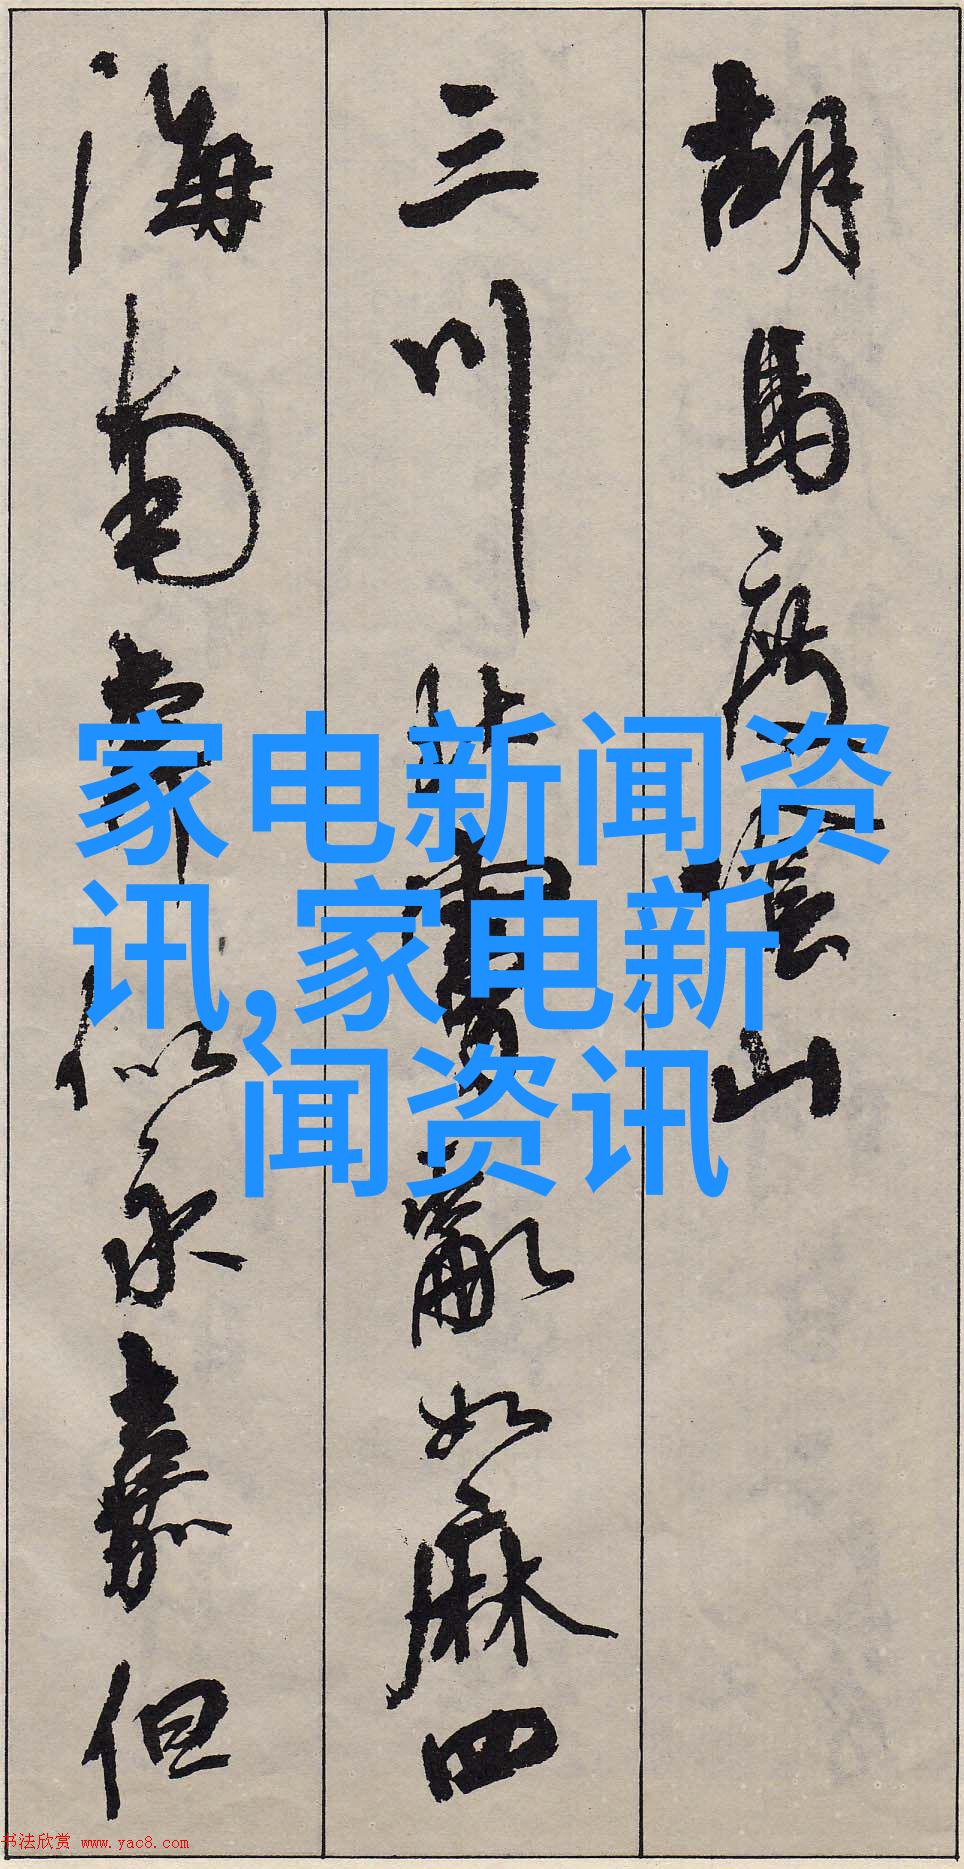 胡馬度陰山
三川北虜亂如麻四
海南奔似永嘉但
家电新闻资
讯,家电新
闻资讯
书法欣赏 www.yac8.com